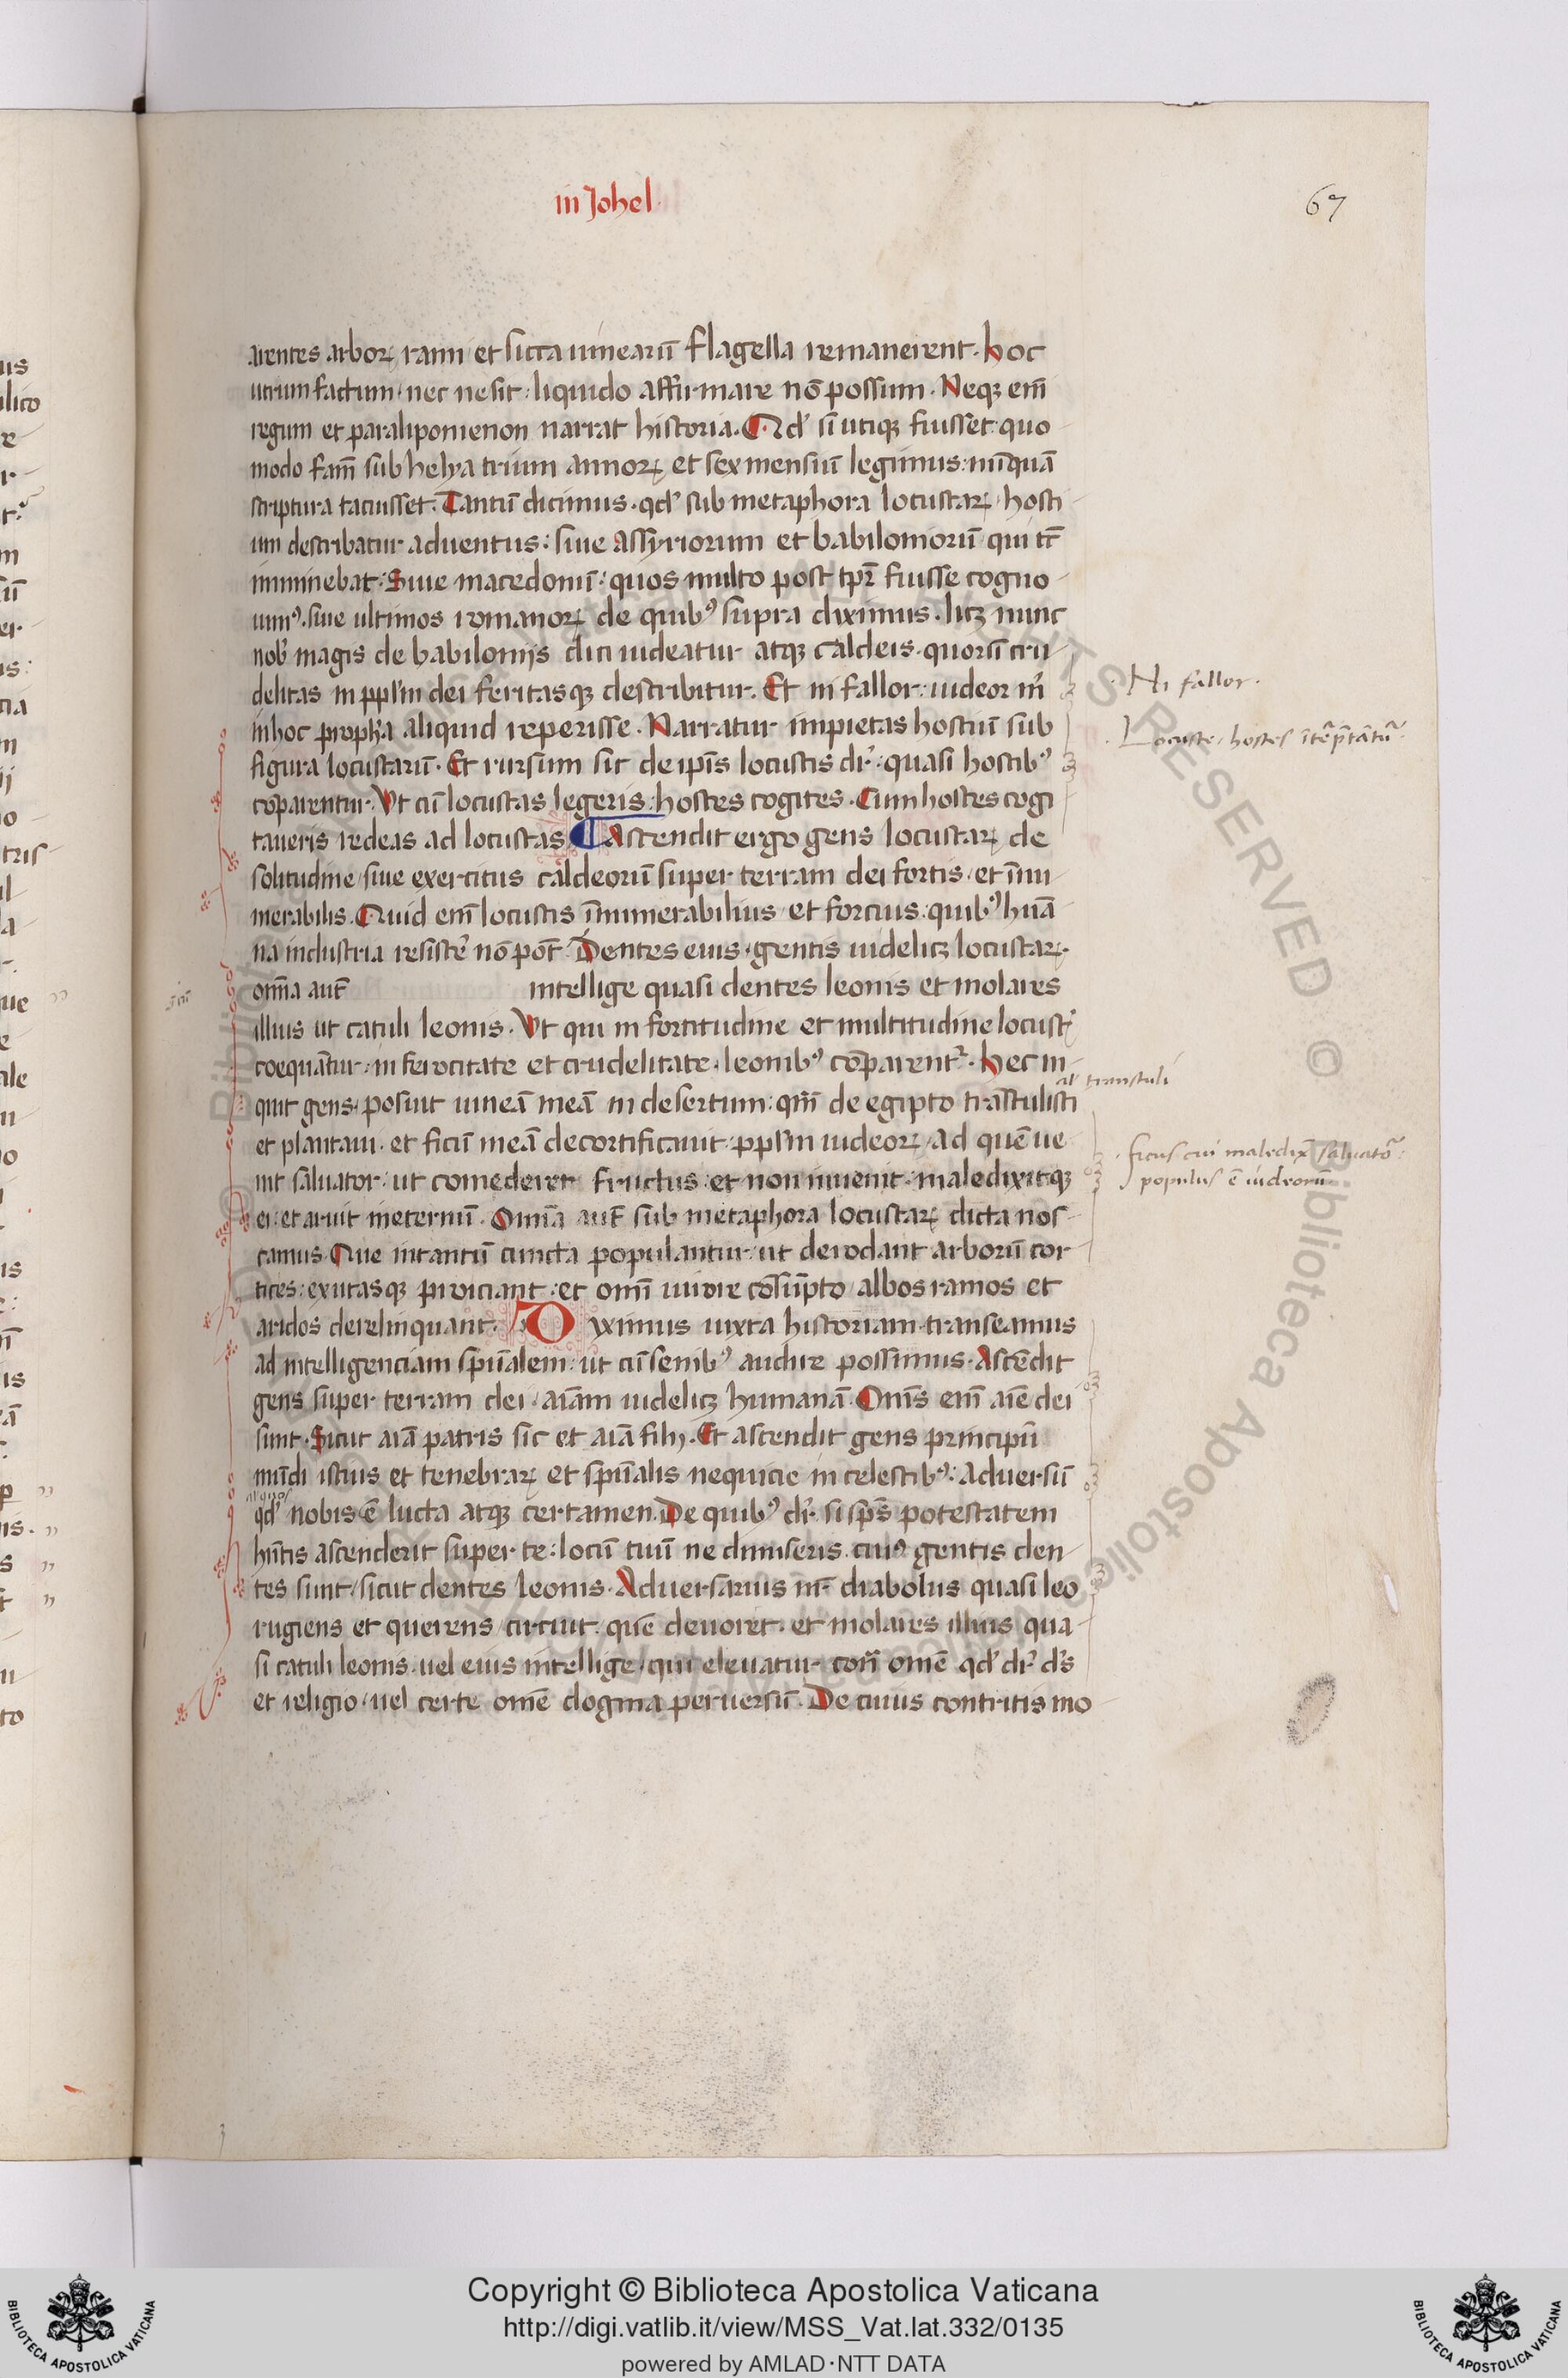 in Johel
67
arentes arboꝝ rami et sicca uinearū flagella remanerent. Hoc
utrum factum nec ne sit: liquido affirmare nō possum. Neqꝫ em̄
regum et paralipomenon narrat historia. Qd' si utiqꝫ fuisset quo
modo fam̄ sub helya trium annoꝝ et sex mensiū legimus: nūquā
scriptura tacuisset. Tantū dicimus. qd' sub metaphora locustaꝝ hosti
um describatur aduentus: siue assyriorum et babiloniorū qui tc̄
imminebat. Siue macedonū: quos multo post tp̄r fuisse cogno
uimꝰ. siue ultimos romanoꝝ de quibꝰ supra diximus. licꝫ nunc
nob' magis de babilonijs dici uideatur atqꝫ caldeis. quorū cru
delitas in ppl'm dei feritasqꝫ describitur. Et ni fallor: uideor m̄
in hoc proph'a aliquid reperisse. Narratur impietas hostiū sub
figura locustarū. Et rursum sic de ip̄is locustis dr̄: quasi hostibꝰ
cōparentur. Vt cū locustas legeris: hostes cogites. Cum hostes cogi
taueris redeas ad locustas ¶ Ascendit ergo gens locustaꝝ de
solitudine siue exercitus caldeorū super terram dei fortis. et īnu
merabilis. Quid em̄ locustis īnumerabilius et forcius: quibꝰ humā
na industria resistē nō pot̄. Dentes eius. gentis uidelicꝫ locustaꝝ.
om̄ia aut̄ intellige quasi dentes leonis et molares
illius ut catuli leonis. Vt qui in fortitudine et multitudine locust'
coequātur: in ferocitate et crudelitate. leonibꝰ cōparent᷑. Hec in
quit gens. posuit uineā meā in desertum: qm̄ de egipto trāstulisti
et plantaui. et ficū meā decortificauit: ppl'm iudeoꝝ. ad quē ue
nit saluator: ut comederet fructus: et non inuenit: maledixitqꝫ
ei: et aruit ineternū. Om̄ia aut̄ sub metaphora locustaꝝ dicta nos
camus. Que intantū cuncta populantur: ut derodant arborū cor
tices: exutasqꝫ proiciant: et om̄i uiore cōsūpto albos ramos et
aridos derelinquant. Diximus iuxta historiam. transeamus
ad intelligenciam sp̄ualem: ut cū senibꝰ audire possimus. Ascēdit
gens super terram dei. aīam uidelicꝫ humanā. Om̄s em̄ aīe dei
sunt. Sicut aīa patris sic et aīa filij. Et ascendit gens principū
mūdi istius et tenebraꝝ et sp̄ualis nequicie in celestibꝰ: Aduersū
qd' nobis ē lucta atqꝫ certamen. De quibꝰ dr̄. si sp̄s potestatem
hn̄tis ascenderit super te: locū tuū ne dimiseris. cuiꝰ gentis den
tes sunt sicut dentes leonis. Aduersarius nr̄ diabolus quasi leo
rugiens et querens circuit quē deuoret. et molares illius qua
si catuli leonis. uel eius intellige qui eleuatur con̄ om̄e qd' dr̄ d's
et religio. uel certe om̄e dogma peruersū. De cuius contritis mo
Ni fallor.
Locuste, hostes īterp̄tātur.
al' transtuli
ficus cui maledix̄ saluator
populus ē iudeorū
Copyright © Biblioteca Apostolica Vaticana
http://digi.vatlib.it/view/MSS_Vat.lat.332/0135
powered by AMLAD·NTT DATA
BIBLIOTECA APOSTOLICA VATICANA
BIBLIOTECA APOSTOLICA VATICANA